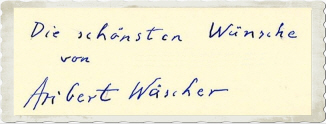 Die schönsten Wünsche
von
Aribert Wäscher